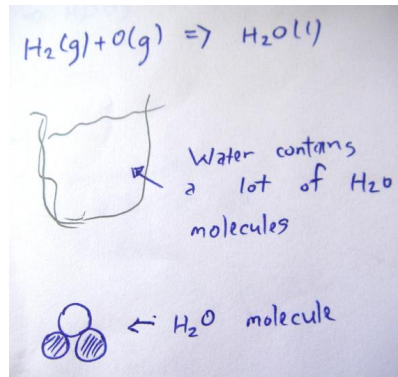 H₂(g)+O(g) => H₂O(l)
Water contans
a lot of H₂O
molecules
← H₂O molecule